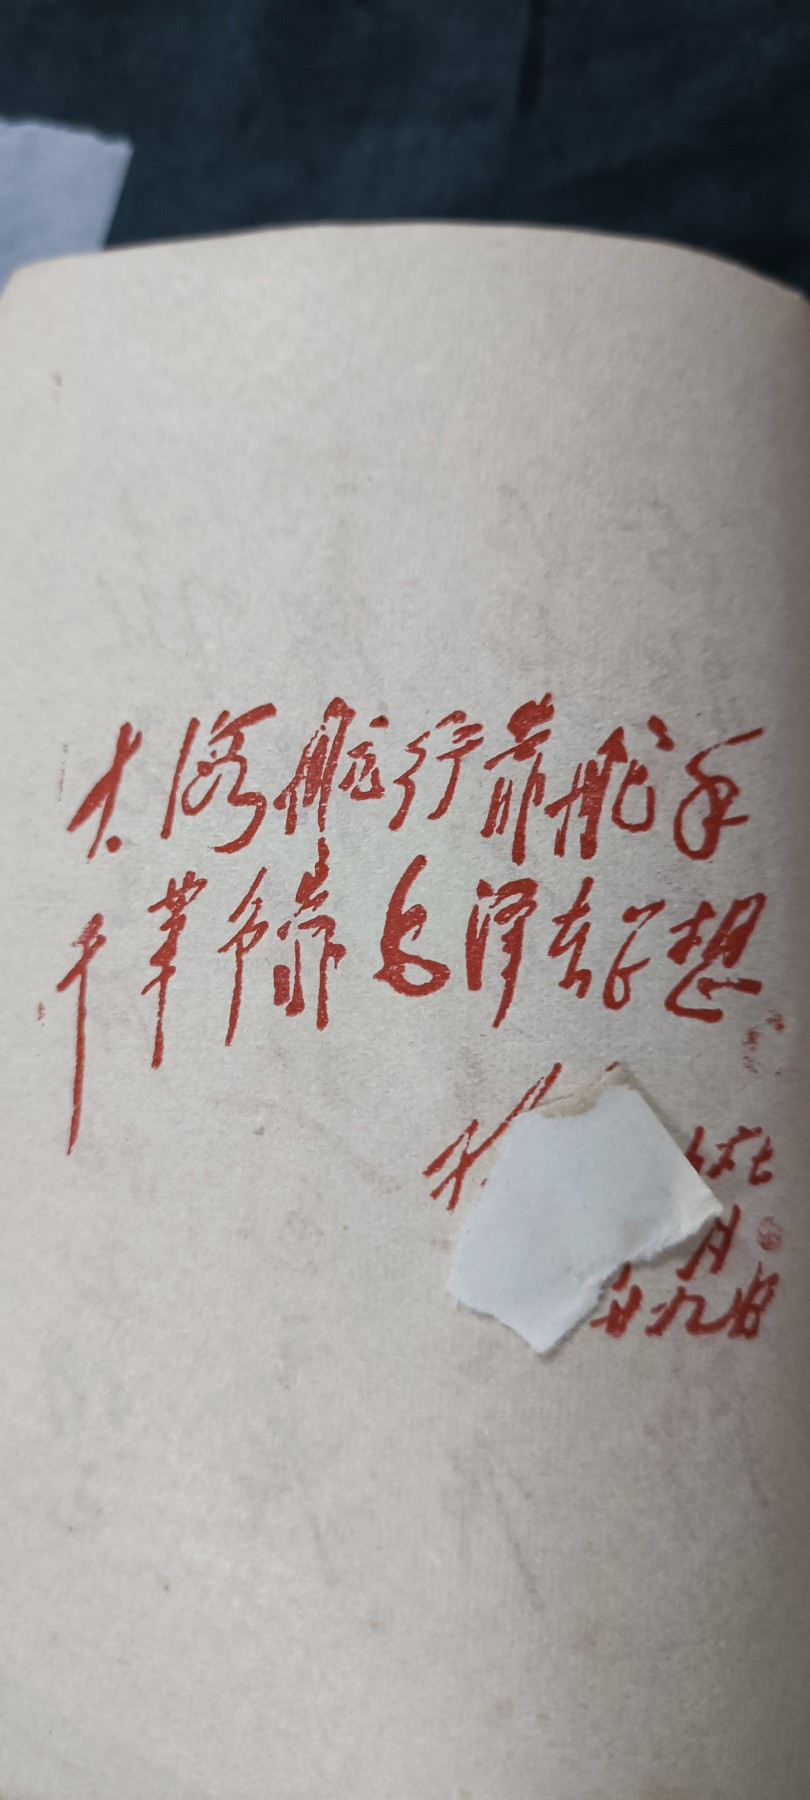 大海航行靠舵手
干革命靠毛泽东思想
月
廿九日